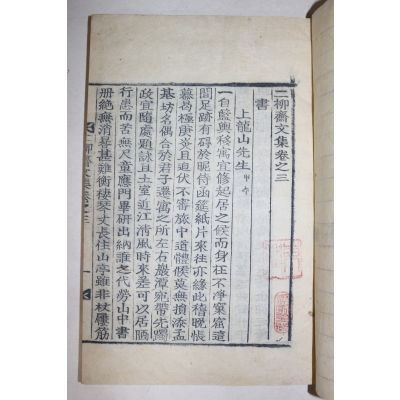 二柳齋文集卷之三
書
上龍山先生 甲午
一自藍輿移寓宜修起居之候而身在不淨窠窟遣
間足跡有碍於昵侍函筵紙片來往亦緣此稽晩悵
慕曷極庚炎且迫伏不審旅中道體候莫無損添孟
基坊名偶合於君子遷寓之所左右巖潭宛帶先躅
政宜隨處題詠且土室近江淸風時來差可以居陋
行患而苦無尺童應門畢硏出納誰之代勞山中書
册絶無消暑甚難衡棲琴丈長住山亭雖非杖屨筋
二柳齋文集卷之三
一